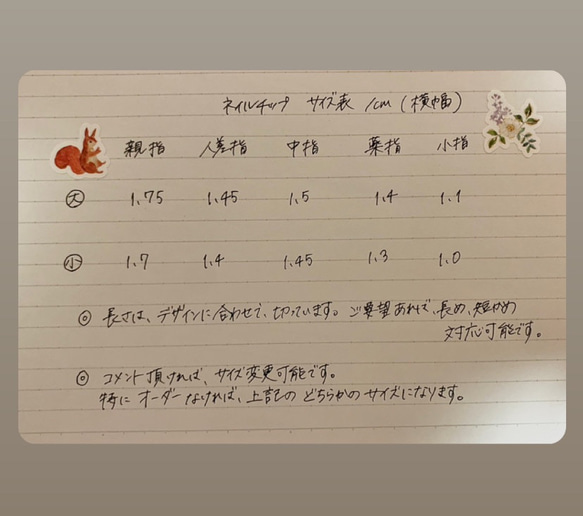 ネイルチップ サイズ表 /cm (横幅)
親指 人差指 中指 薬指 小指
大 1.75 1.45 1.5 1.4 1.1
小 1.7 1.4 1.45 1.3 1.0
◎ 長さは、デザインに合わせて、切っています。ご要望あれば、長め、短かめ
対応可能です。
◎ コメント頂ければ、サイズ変更可能です。
特に オーダーなければ、上記の どちらかの サイズになります。